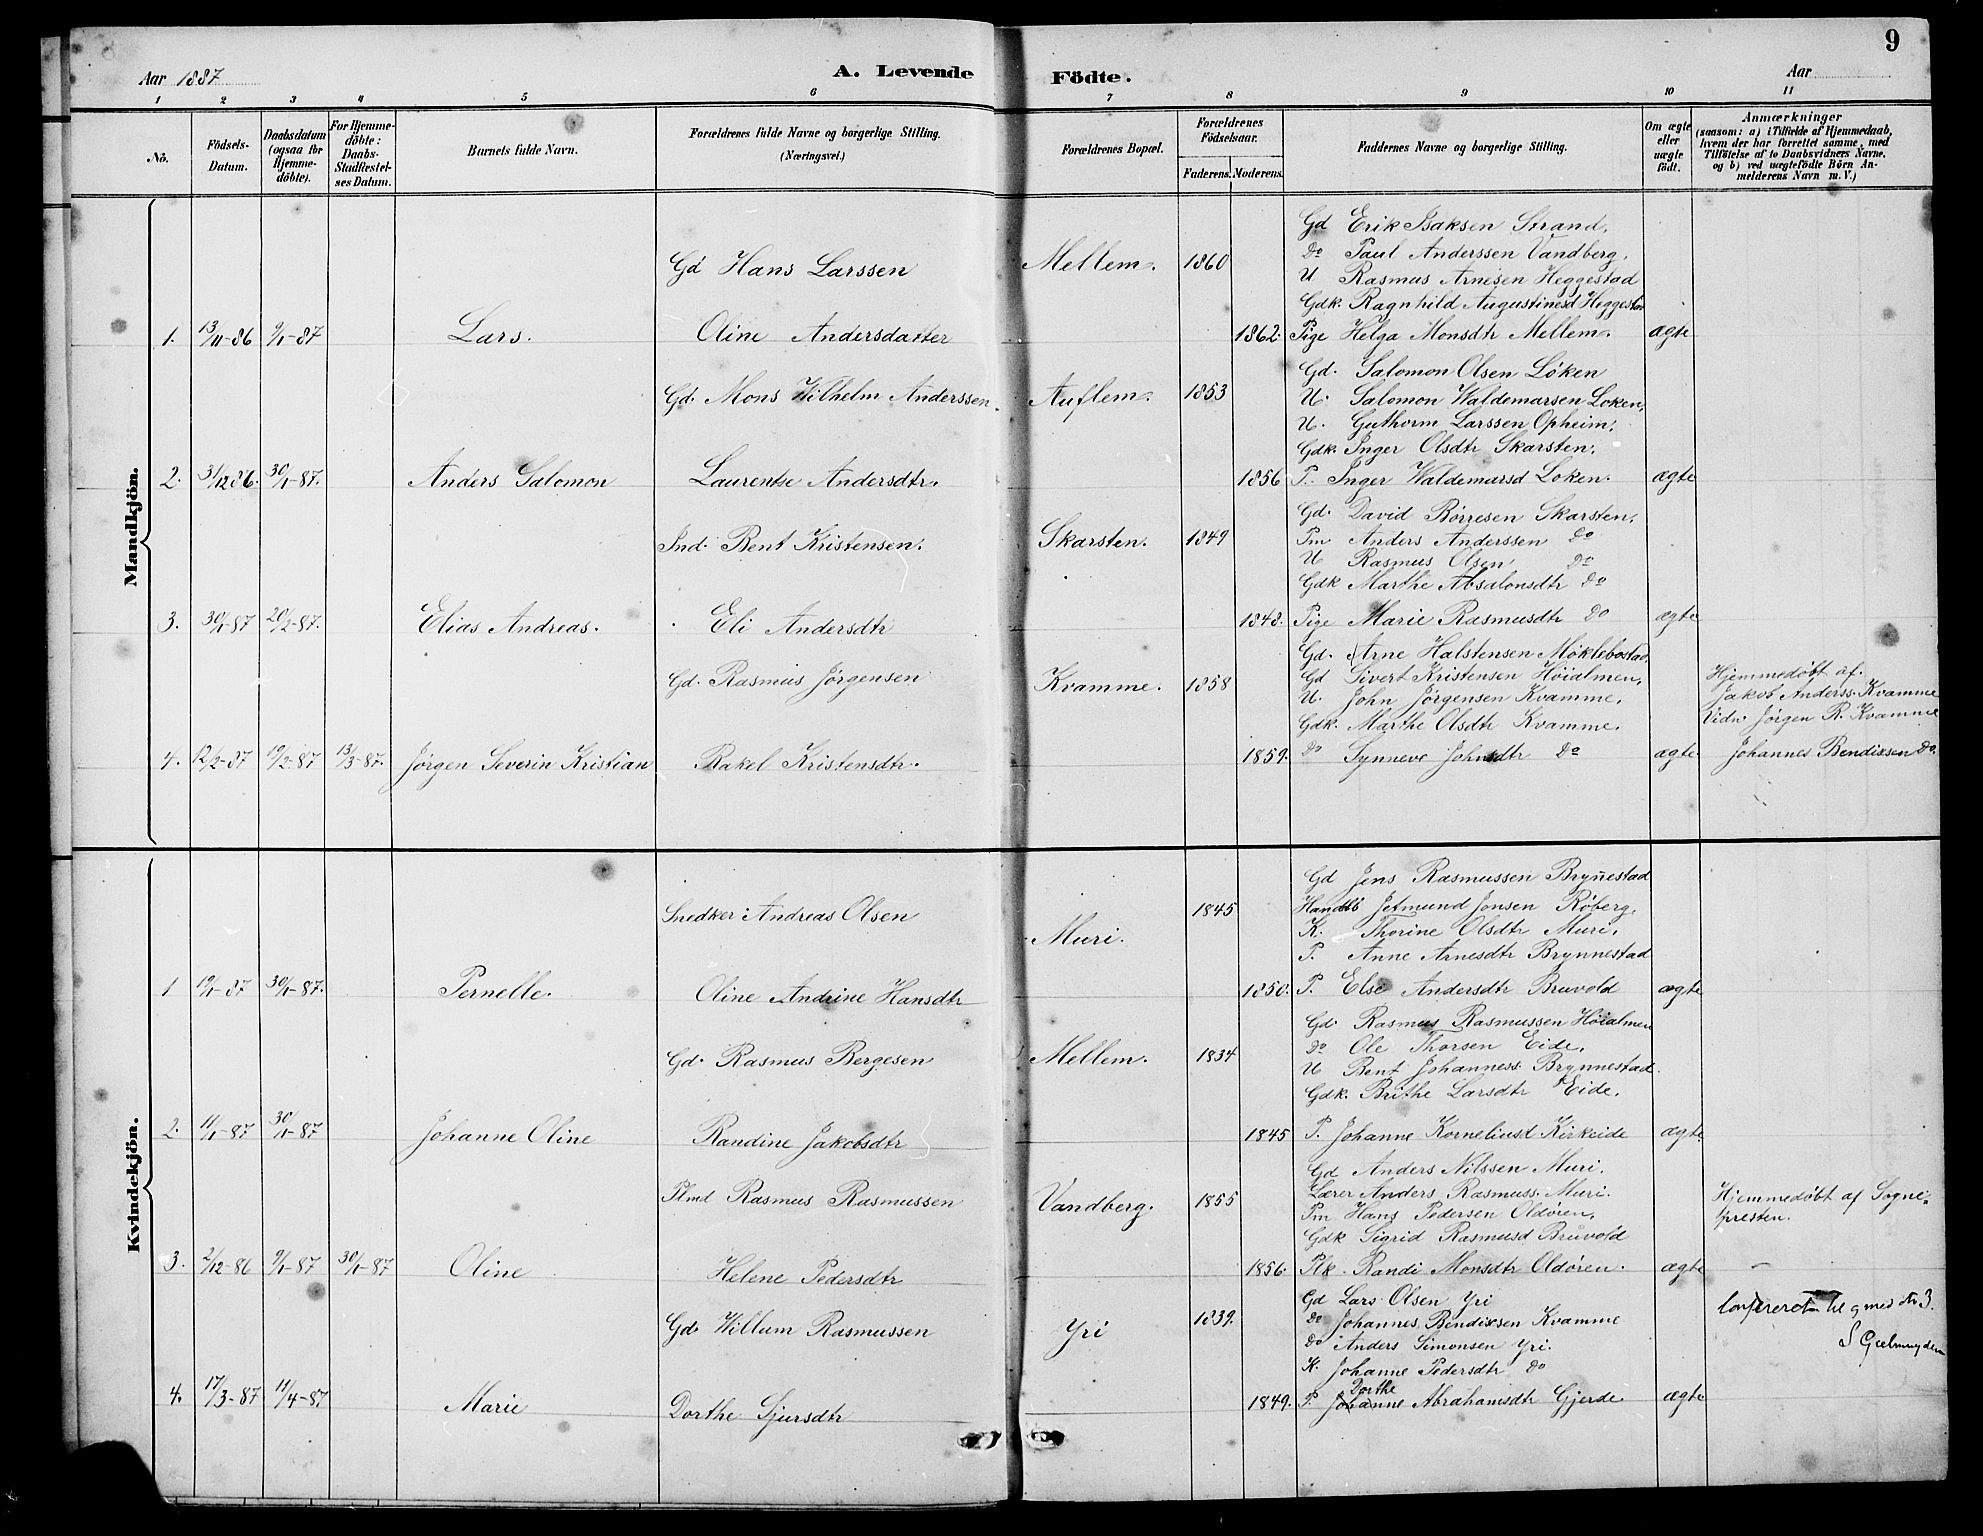 9
Aar 1887
A. Levende Födte.
Aar
1 2 3 4 5 6 7 8 9 10 11
No.
Födsels-Datum.
Daabsdatum (ogsaa for Hjemmedöbte).
For Hjemmedöbte: Daabs-Stadfæstelses Datum.
Barnets fulde Navn.
Forældrenes fulde Navne og borgerlige Stilling. (Næringsvei.)
Forældrenes Bopæl.
Forældrenes Födselsaar.
Faderens. Moderens.
Faddernes Navne og borgerlige Stilling.
Om ægte eller uægte födt.
Anmærkninger
(saasom: a) i Tilfælde af Hjemmedaab, hvem der har forrettet samme, med Tilföielse af to Daabsvidners Navne, og b) ved uægtefödte Börn Anmelderens Navn m. V.)
Mandkjön.
Gd Erik Isaksen Strand.
Gd Hans Larssen Mellem. 1860 Do Paul Anderssen Vandberg.
U Rasmus Arnesen Heggestad
Gdk. Ragnhild Augustinesd Heggestad
1. 13/11-86 9/1-87 Lars. Oline Andersdatter 1862. Pige Helga Monsdtr Mellem. ægte
Gd. Salomon Olsen Löken
Gd. Mons Wilhelm Anderssen. Auflem. 1853 U. Salomon Waldemarsen Loken.
U. Guthorm Larssen Opheim.
Gdk. Inger Olsdtr Skarsten.
2. 31/12 86. 30/1-87. Anders Salomon Laurentse Andersdtr. 1856 P. Inger Waldemarsd Loken. ægte
Gd. David Börresen Skarsten.
Ind. Bent Kristensen. Skarsten. 1849 Pm Anders Anderssen Do
U Rasmus Olsen Do
Gdk Marthe Absalonsdtr Do
3. 30/1-87 20/2-87. Elias Andreas. Eli Andersdtr 1848. Pige Marie Rasmusdtr Do ægte
Gd. Arne Halstensen Möklebostad
Gd. Rasmus Jörgensen Kvamme. 1858 Gd Sivert Kristensen Höialmen. Hjemmedöbt af
U. John Jörgensen Kvamme. Jakob Anderss. Kvamme
Gdk. Marthe Olsdtr Kvamme. Vidn. Jörgen R. Kvamme
4. 12/2-87 19/2-87 13/3-87. Jörgen Severin Kristian Rakel Kristensdtr. 1859. Do Synneve Johnsdtr Do ægte Johannes Bendixsen Do.
Kvindekjön.
Gd Jens Rasmussen Brynestad
Snedker Andreas Olsen Muri. 1845 Jetmund Jonsen Röberg.
K. Thorine Olsdtr Muri.
P. Anne Arnesdtr Brynnestad
1 19/1-87 30/1-87. Pernelle. Oline Andrine Hansdtr 1850. P. Else Andersdtr Bruvold ægte
Gd. Rasmus Rasmussen Höialmen
Gd. Rasmus Bergesen Mellem. 1834 Do Ole Thorsen Eide.
U Bent Johanness. Brynnestad.
Gdk. Brithe Larsdtr Eide.
2. 11/1-87 30/1-87 Johanne Oline Randine Jakobsdtr 1845 P. Johanne Korneliusd Kirkeide ægte
Gd Anders Nilssen Muri.
Plmd Rasmus Rasmussen Vandberg. 1855 Lærer Anders Rasmuss. Muri. Hjemmedöbt af Sogne-
Pm Hans Pedersen Oldören. presten.
Gdk Sigrid Rasmusd Bruvold
3. 2/12-86 9/1-87 30/1-87 Oline Helene Pedersdtr 1856. Plk. Randi Monsdtr Oldören. ægte
Gd Lars Olsen Yri Confereret til 9 med Nr 3.
Gd. Willum Rasmussen Yri 1839. Do Johannes Bendixsen Kvamme
Do Anders Simonsen Yri. S Gjelmuyden
K. Johanne Pedersdtr Do
4. 17/3-87 11/4-87 Marie Dorthe Sjursdtr 1849. P. Johanne Dorthe Abrahamsdtr Gjerde. ægte